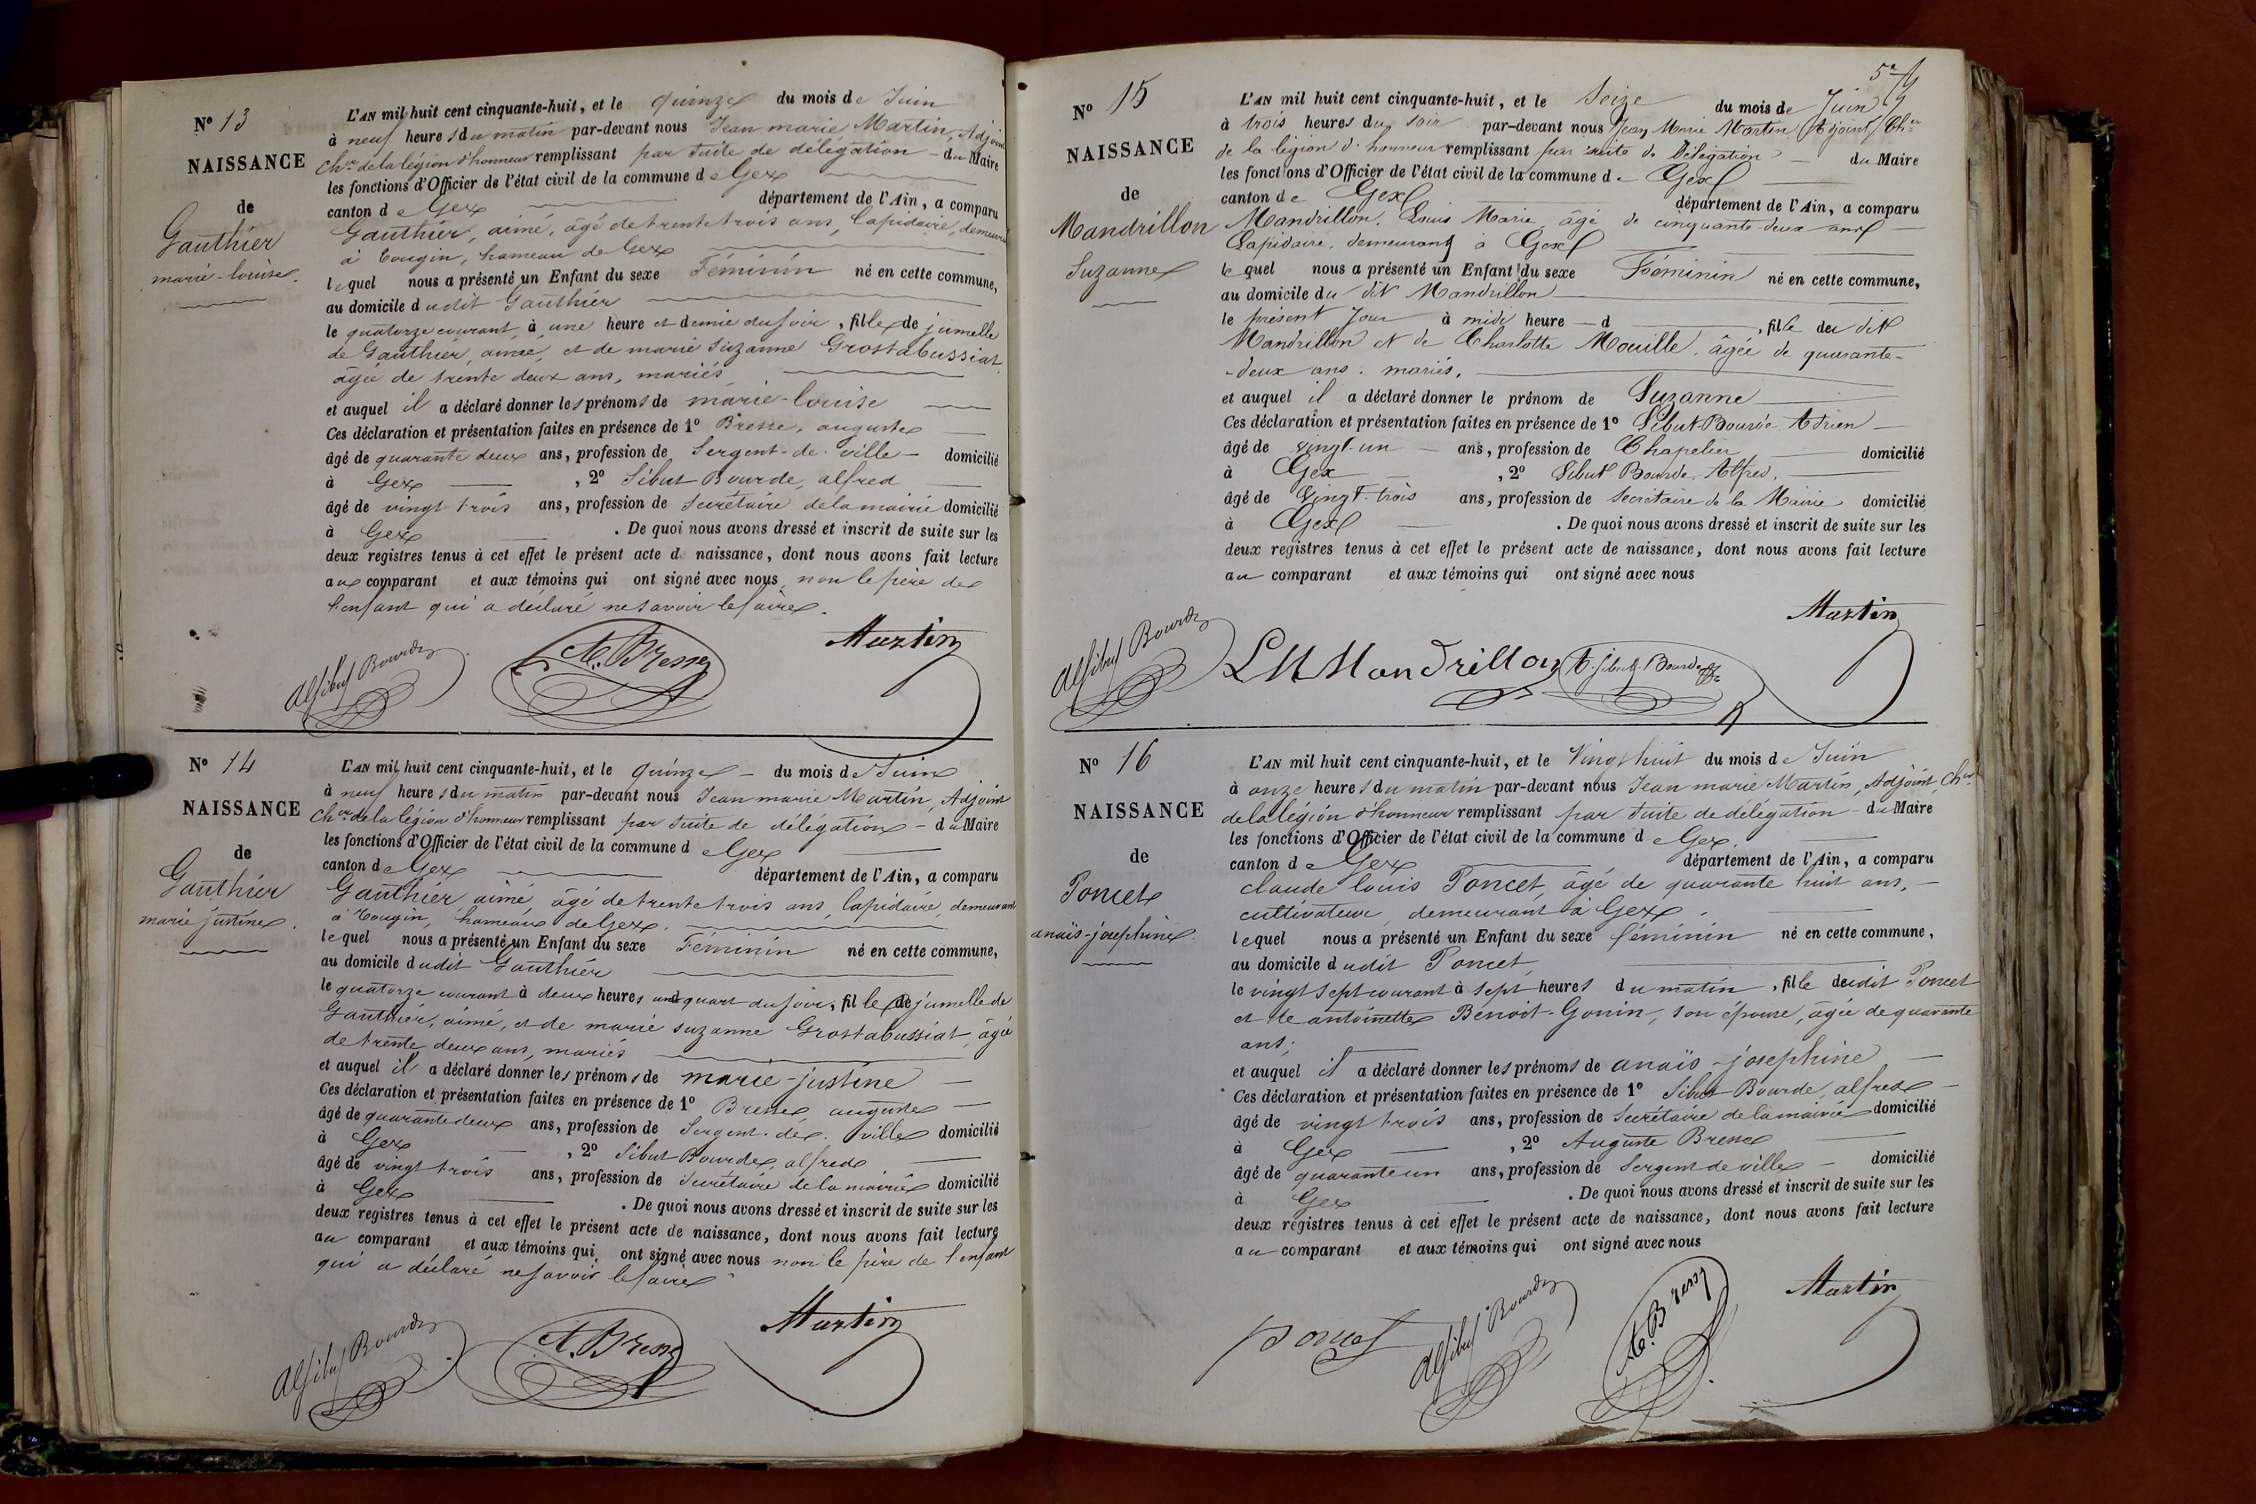 Nº 13
NAISSANCE
de
Gauthier
marie-louise.
L'AN mil huit cent cinquante-huit, et le quinze du mois de Juin
à neuf heures du matin par-devant nous Jean marie Martin, Adjoint
Chev. de la légion d'honneur remplissant par suite de délégation - du Maire
les fonctions d'Officier de l'état civil de la commune de Gex
canton de Gex département de l'Ain, a comparu
Gauthier, aimé, âgé de trente trois ans, lapidaire, demeurant
à Tougin, hameau de Gex
lequel nous a présenté un Enfant du sexe Féminin né en cette commune,
au domicile dudit Gauthier
le quatorze courant à une heure et demie du soir, fille de jumelle
de Gauthier, aimé, et de marie Suzanne Grostabussiat,
âgée de trente deux ans, mariés
et auquel il a déclaré donner les prénoms de marie-louise
Ces déclaration et présentation faites en présence de 1º Bresse, auguste
âgé de quarante deux ans, profession de Sergent-de-ville - domicilié
à Gex , 2º Sibut Bourde, alfred
âgé de vingt trois ans, profession de secrétaire de la mairie domicilié
à Gex . De quoi nous avons dressé et inscrit de suite sur les
deux registres tenus à cet effet le présent acte de naissance, dont nous avons fait lecture
aux comparant et aux témoins qui ont signé avec nous, non le père de
l'enfant qui a déclaré ne savoir le faire.
Alf Sibut Bourde A. Bresse Martin
Nº 14
NAISSANCE
de
Gauthier
marie justine.
L'AN mil huit cent cinquante-huit, et le quinze - du mois de Juin
à neuf heures du matin par-devant nous Jean marie Martin, Adjoint
Chev. de la légion d'honneur remplissant par suite de délégation - du Maire
les fonctions d'Officier de l'état civil de la commune de Gex
canton de Gex département de l'Ain, a comparu
Gauthier, aimé, âgé de trente trois ans, lapidaire, demeurant
à Tougin, hameau de Gex.
lequel nous a présenté un Enfant du sexe Féminin né en cette commune,
au domicile dudit Gauthier
le quatorze courant à deux heures un quart du soir, fille de jumelle de
Gauthier, aimé, et de marie suzanne Grostabussiat, âgée
de trente deux ans, mariés
et auquel il a déclaré donner les prénoms de marie-justine
Ces déclaration et présentation faites en présence de 1º Bresse, auguste
âgé de quarante deux ans, profession de Sergent-de-ville domicilié
à Gex , 2º Sibut Bourde, alfred
âgé de vingt trois ans, profession de secrétaire de la mairie domicilié
à Gex . De quoi nous avons dressé et inscrit de suite sur les
deux registres tenus à cet effet le présent acte de naissance, dont nous avons fait lecture
au comparant et aux témoins qui ont signé avec nous non le père de l'enfant
qui a déclaré ne savoir le faire
Alf Sibut Bourde A. Bresse Martin
Nº 15
NAISSANCE
de
Mandrillon
Suzanne
L'AN mil huit cent cinquante-huit, et le Seize du mois de Juin
à trois heures du soir par-devant nous Jean Marie Martin Adjoint, Cher
de la légion d'honneur remplissant par suite de Délégation - du Maire
les fonctions d'Officier de l'état civil de la commune de Gex
canton de Gex département de l'Ain, a comparu
Mandrillon, Louis Marie, âgé de cinquante-deux ans
Lapidaire, demeurant à Gex
lequel nous a présenté un Enfant du sexe Féminin né en cette commune,
au domicile du dit Mandrillon
le présent jour à midi heure - d , fille du dit
Mandrillon et de Charlotte Mouille, âgée de quarante-
-deux ans. mariés.
et auquel il a déclaré donner le prénom de Suzanne
Ces déclaration et présentation faites en présence de 1º Sibut-Bourde Adrien
âgé de vingt-un ans, profession de Chapelier domicilié
à Gex , 2º Sibut Bourde, Alfred,
âgé de vingt-trois ans, profession de secrétaire de la Mairie domicilié
à Gex . De quoi nous avons dressé et inscrit de suite sur les
deux registres tenus à cet effet le présent acte de naissance, dont nous avons fait lecture
au comparant et aux témoins qui ont signé avec nous
Martin
Alf Sibut Bourde LM Mandrillon A. Sibut-Bourde
Nº 16
NAISSANCE
de
Poncet
anaïs-josephine.
L'AN mil huit cent cinquante-huit, et le Vingt huit du mois de Juin
à onze heures du matin par-devant nous Jean marie Martin, Adjoint, Cher
de la légion d'honneur remplissant par suite de délégation - du Maire
les fonctions d'Officier de l'état civil de la commune de Gex.
canton de Gex département de l'Ain, a comparu
claude louis Poncet, âgé de quarante huit ans,
cultivateur, demeurant à Gex.
lequel nous a présenté un Enfant du sexe féminin né en cette commune,
au domicile dudit Poncet,
le vingt sept courant à sept heures du matin, fille dudit Poncet
et de antoinette Benoit-Gonin, son épouse, âgée de quarante
ans;
et auquel il a déclaré donner les prénoms de anaïs-josephine
Ces déclaration et présentation faites en présence de 1º Sibut-Bourde, alfred
âgé de vingt trois ans, profession de secrétaire de la mairie domicilié
à Gex , 2º Auguste Bresse
âgé de quarante un ans, profession de Sergent de ville domicilié
à Gex . De quoi nous avons dressé et inscrit de suite sur les
deux registres tenus à cet effet le présent acte de naissance, dont nous avons fait lecture
au comparant et aux témoins qui ont signé avec nous
Poncet Alf Sibut Bourde A. Bresse Martin